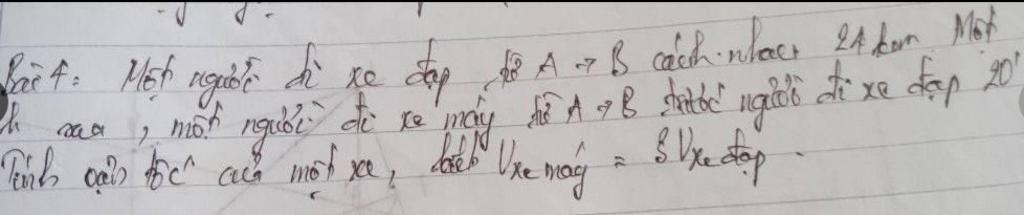 Bài 4: Một người đi xe đạp từ A → B cách nhau 24 km. Một
h sau, một người đi xe máy từ A → B trước người đi xe đạp 20'
Tính vận tốc của mỗi xe, biết V xe máy = 3 V xe đạp.